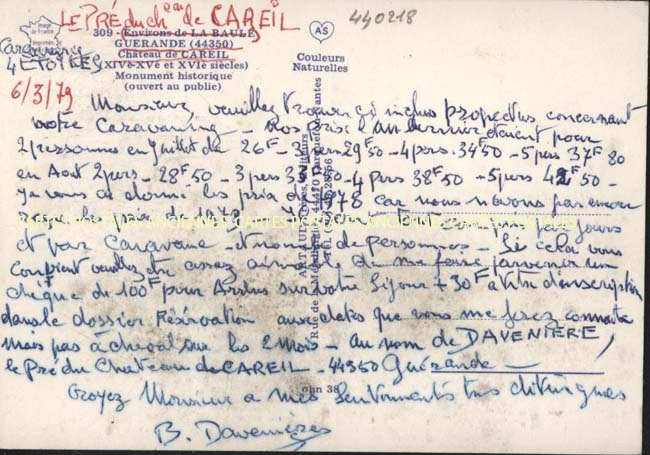 LE PRÉ du chau de CAREIL
440218
Image de France
309 - Environs de LA BAULE
GUERANDE (44350)
Château de CAREIL
(XIVe-XVe et XVIe siècles)
Monument historique
(ouvert au public)
AS
Couleurs
Naturelles
Caravaning
4 ETOILES
6/3/79
Monsieur veuillez trouver ci inclus propectus concernant
notre Caravaning - nos prix l'an dernier étaient pour
2 personnes en Juillet de 26F - 3 pers 29F50 - 4 pers. 34F50 - 5 pers 37F80
en Aout 2 pers - 28F50 - 3 pers - 4 pers 38F50 - 5 pers 42F50 -
je vous ai donné les prix 1978 car nous n'avons pas encore
reçu les prix 1979 par jours
et par Caravane et nombre de personnes - Si cela vous
convient veuillez être assez aimable de me faire parvenir un
chèque de 100F pour Arrhes sur votre Séjour + 30F a titre d'inscription
dans le dossier Réservation aux dates que vous me ferez connaitre
mais pas à cheval sur les 2 mois - au nom de DAVENIÈRE,
le Pré du Chateau de CAREIL - 44350 Guérande -
Croyez Monsieur a mes Sentiments très distingués
B. Davenières